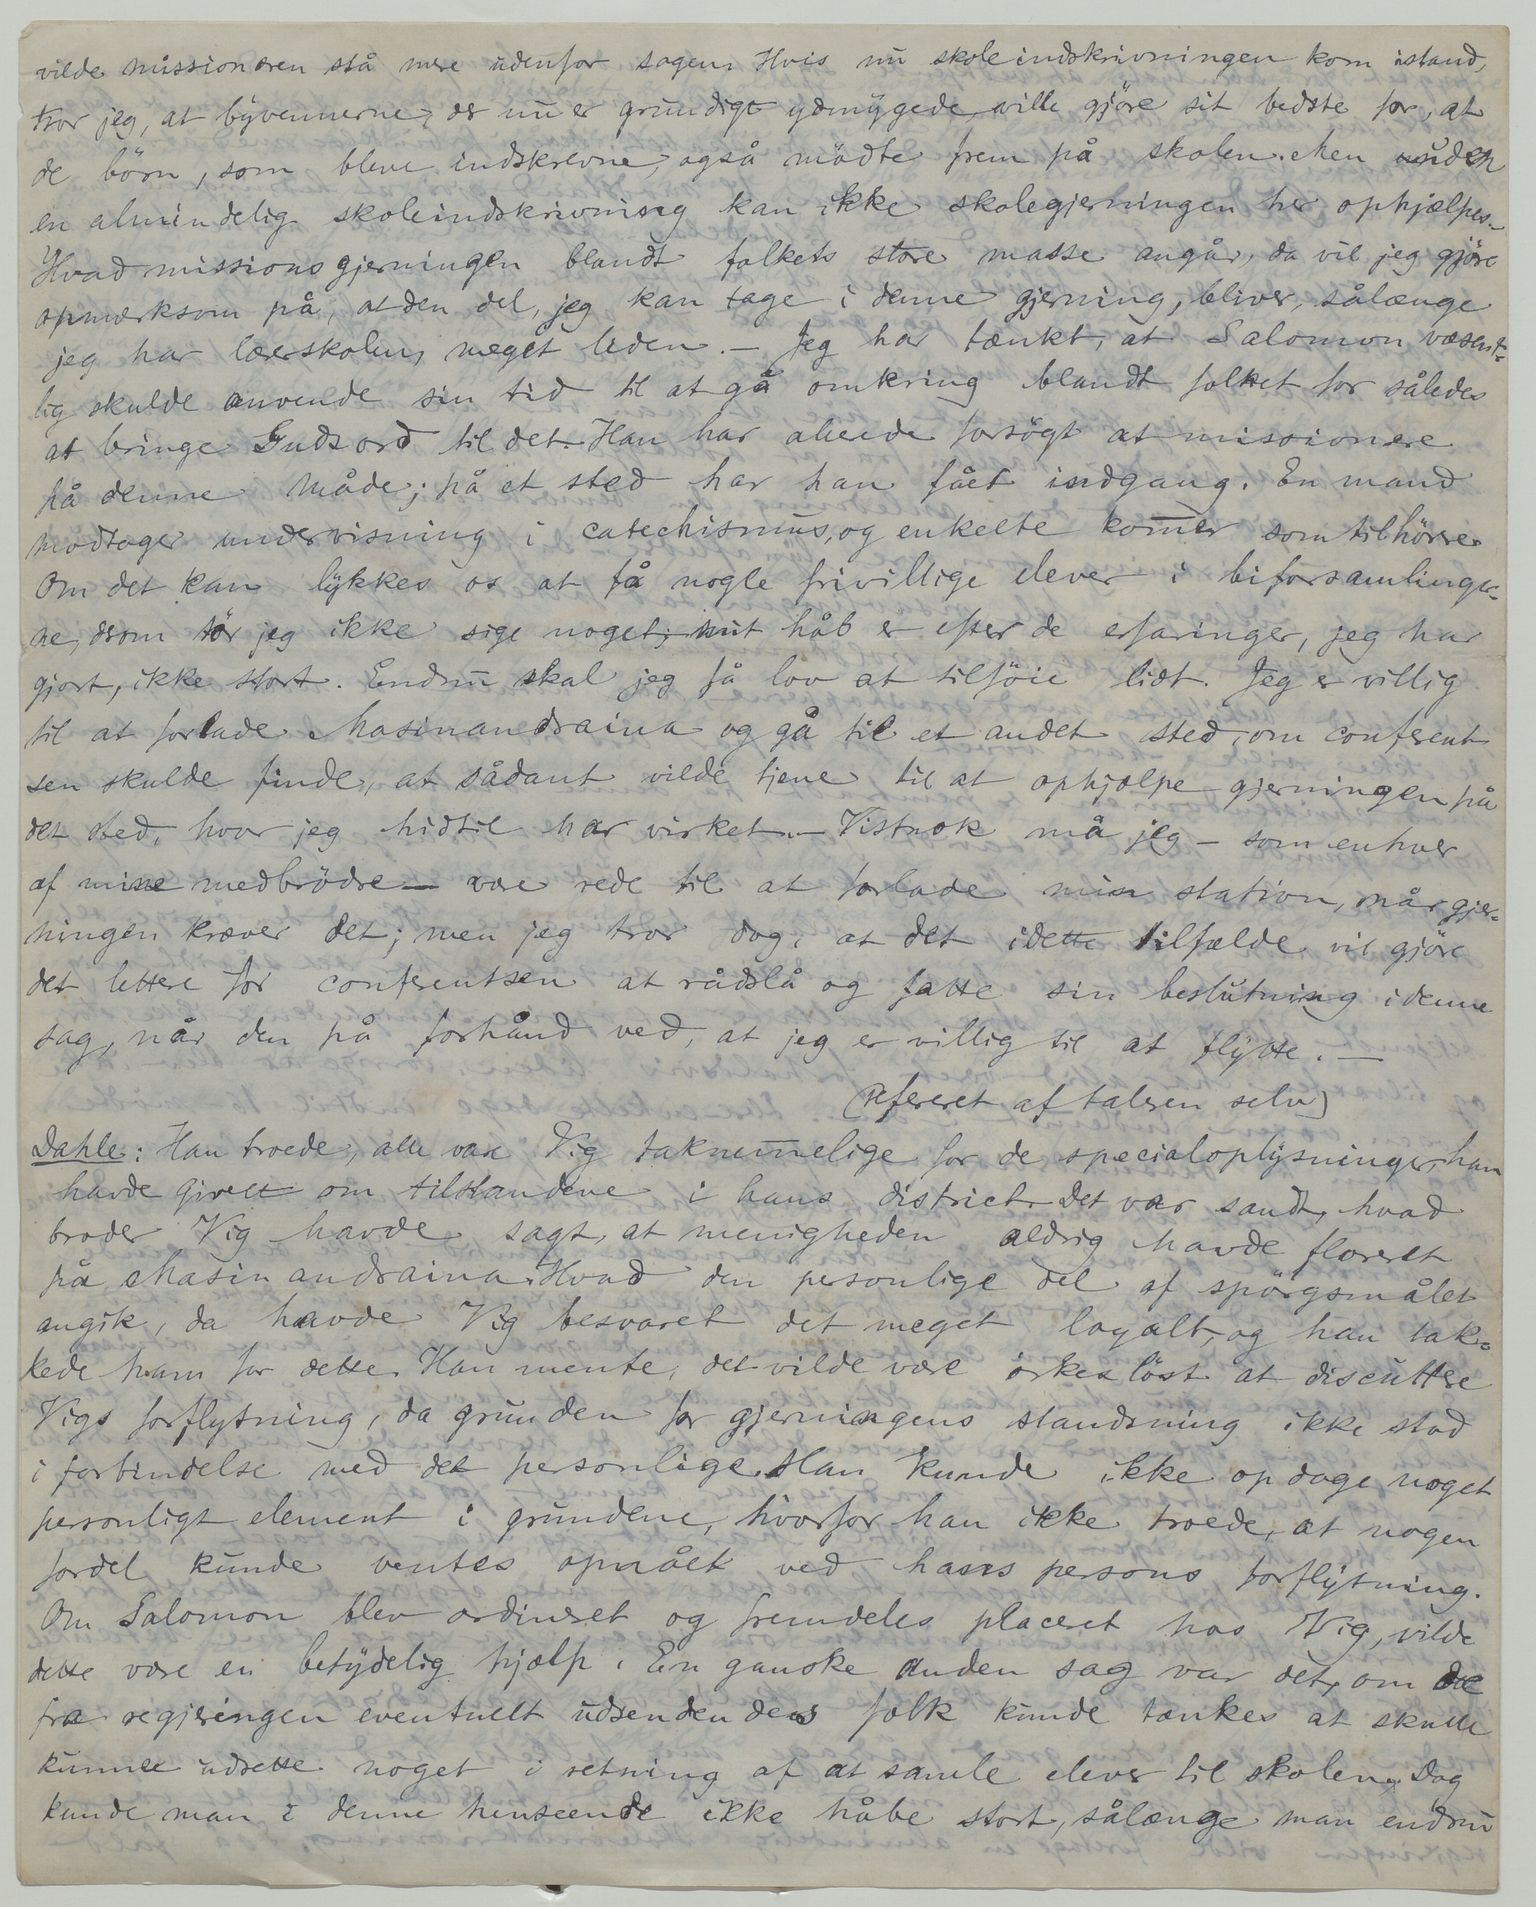 vilde missionæren stå mere udenfor sagen. Hvis nu skoleindskrivningen kom istand,
tror jeg, at byvennerne, der nu er grundigt ydmygede, ville gjöre sit bedste for, at
de börn, som bleve indskrevne, også mödte frem på skolen. Men uden
en almindelig skoleindskrivning kan ikke skolegjerningen her ophjælpes.
Hvad missionsgjerningen blandt folkets store masse angår, da vil jeg gjöre
opmærksom på, at den del, jeg kan tage i denne gjerning, bliver, sålænge
jeg har lærerskolen, meget liden. – Jeg har tænkt, at Salomon væsent-
lig skulde anvende sin tid til at gå omkring blandt folket for således
at bringe Guds ord til det. Han har alerede forsögt at missionere
på denne måde; på et sted har han fået indgang. En mand
modtager undervisning i catechismus, og enkelte komer som tilhörere.
Om det kan lykkes os at få nogle frivillige elever i biforsamlinger-
ne, derom tör jeg ikke sige noget; mit håb er efter de erfaringer, jeg har
gjort, ikke stort. Endnu skal jeg få lov at tilföie lidt. Jeg er villig
til at forlade Masinandraina og gå til et andet sted, om conferent-
sen skulde finde, at sådant vilde tjene til at ophjælpe gjerningen på
det sted, hvor jeg hidtil har virket. – Vistnok må jeg – som enhver
af mine medbrödre – være rede til at forlade min station, når gjer-
ningen kræver det; men jeg tror dog, at det i dette tilfælde vil gjöre
det lettere for conferentsen at rådslå og fatte sin beslutning i denne
sag, når den på forhånd ved, at jeg er villig til at flytte. –
(Refereret af taleren selv)
Dahle: Han troede, alle vare Vig taknemelige for de specialoplysninger, han
havde givet om tilstandene i hans district. Det var sandt, hvad
broder Vig havde sagt, at menigheden aldrig havde floreret
på Masinandraina. Hvad den personlige del af spörgsmålet
angik, da havde Vig besvaret det meget loyalt, og han tak-
kede ham for dette. Han mente, det vilde være örkeslöst at discuttere
Vigs forflytning, da grunden for gjerningens standsning ikke stod
i forbindelse med det personlige. Han kunde ikke opdage noget
personligt element i grundene, hvorfor han ikke troede, at nogen
fordel kunde ventes opnået ved hans persons forflytning.
Om Salomon blev ordineret og fremdeles placeret hos Vig, vilde
dette være en betydelig hjælp. En ganske anden sag var det, om de
fra regjeringen eventuelt udsendendes folk kunde tænkes at skulle
kunne udrette noget i retning af at samle elever til skolen. Dog
kunde man i denne henseende ikke håbe stort, sålænge man endnu